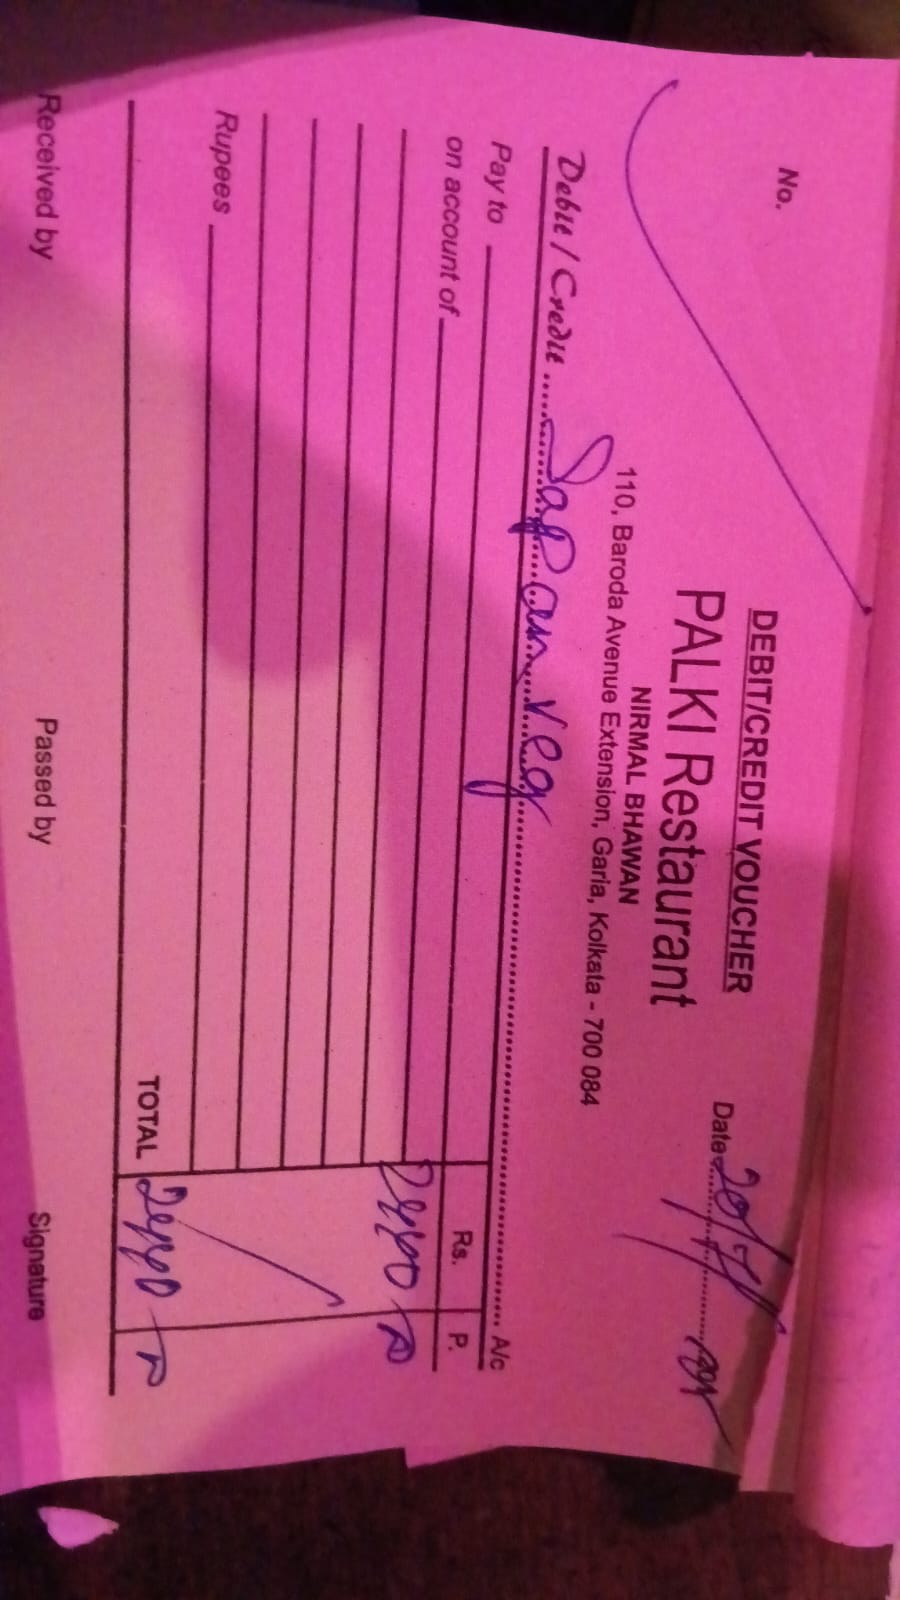 DEBIT/CREDIT VOUCHER
No.
PALKI Restaurant
Date
NIRMAL BHAWAN
110, Baroda Avenue Extension, Garia, Kolkata - 700 084
Debit / Credit Sapan veg A/c
Pay to Rs. P.
on account of
Rupees
TOTAL
Received by Passed by Signature